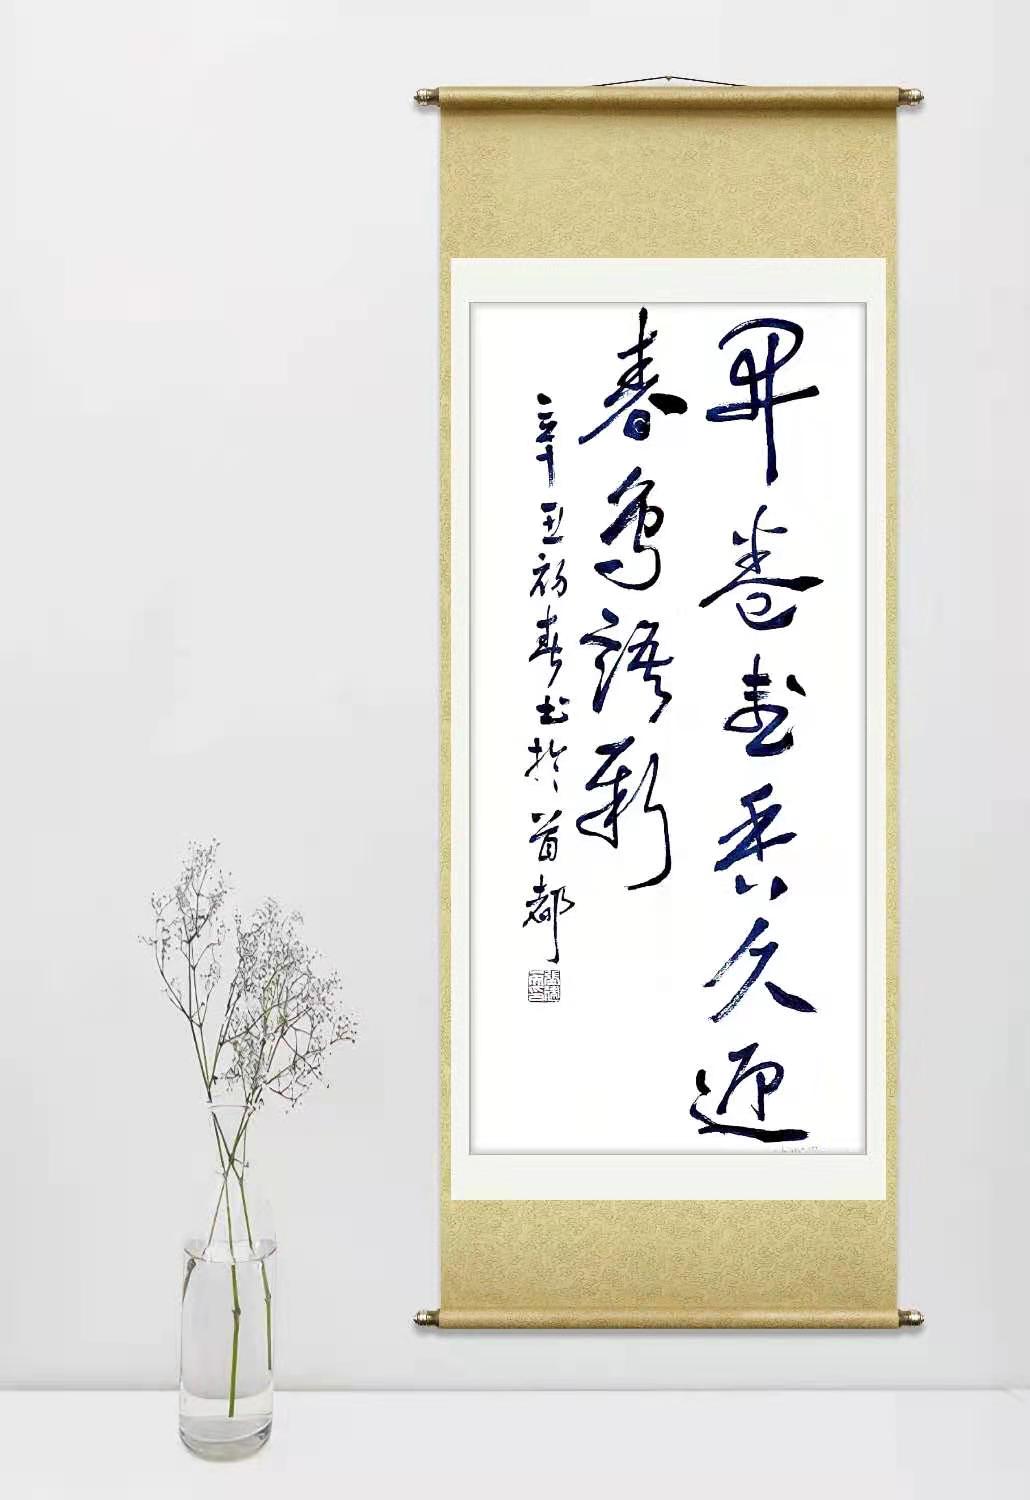 开卷书香久迎
春鸟语新
辛丑初春书于首都